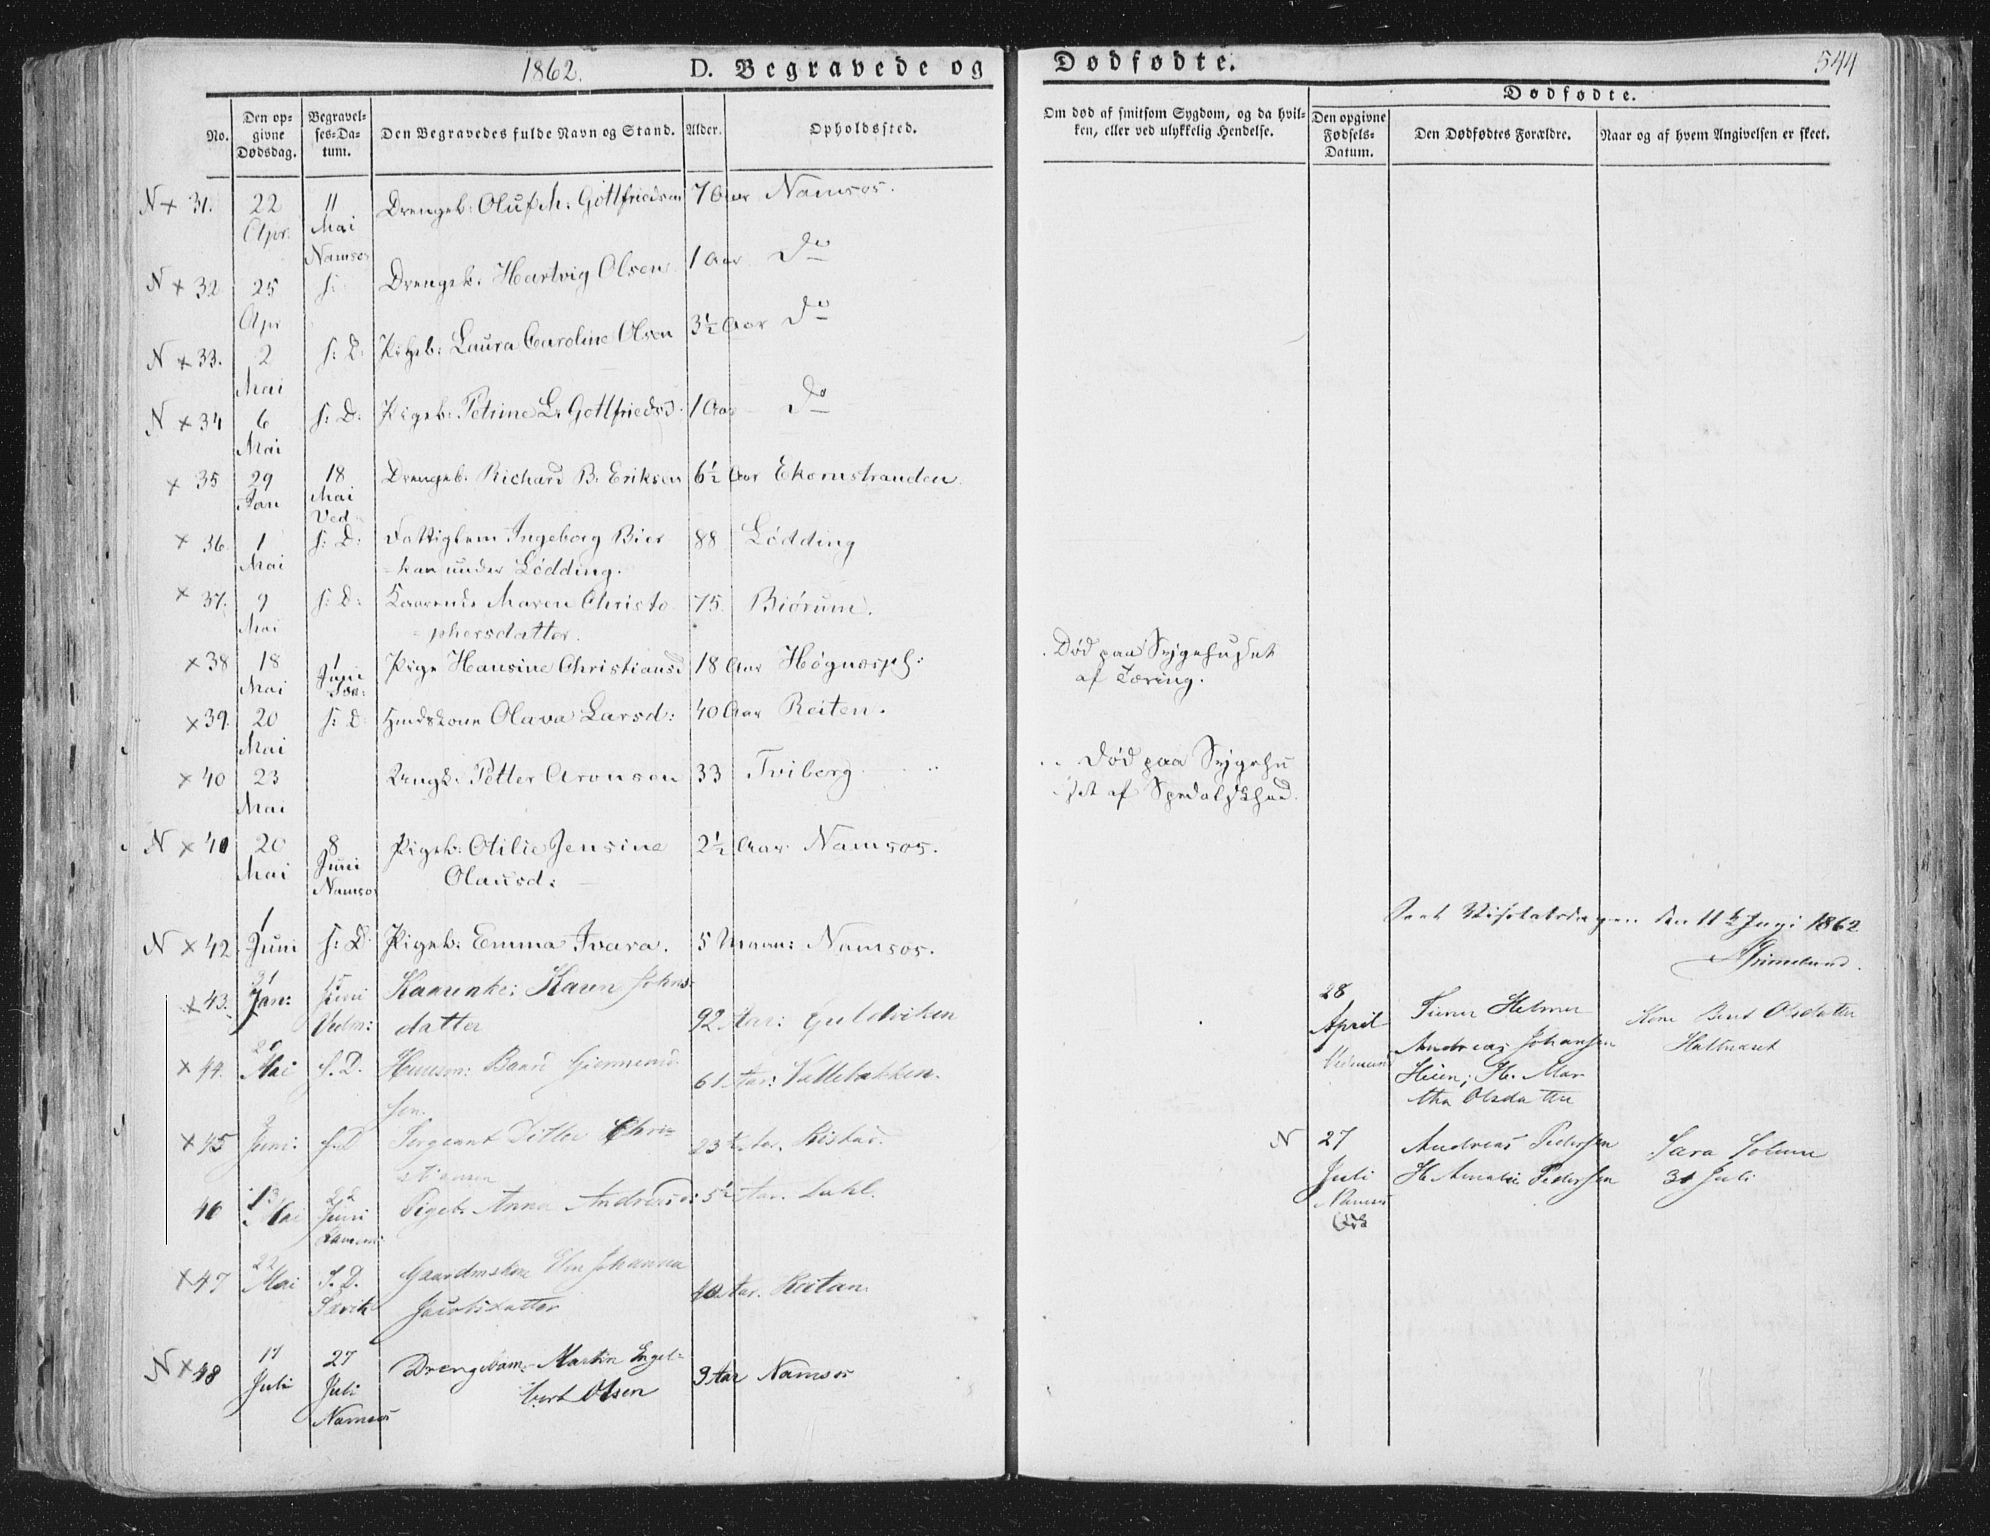 1862.
D. Begravede og
Dødfødte.
544
No.
Den op-
givne
Dødsdag.
Begravel-
ses-Da-
tum.
Den Begravedes fulde Navn og Stand.
Alder.
Opholdssted.
Om død af smitsom Sygdom, og da hvil-
ken, eller ved ulykkelig Hendelse.
Dødfødte.
Den opgivne
Fødsels-
Datum.
Den Dødfødtes Forældre.
Naar og af hvem Angivelsen er skeet.
N + 31. 22 Apr. 11 Mai Namsos Drengeb: Oluf M: Gottfriedsen 7 Aar Namsos.
N + 32 25 Apr s: Drengeb. Hartvig Olsen 1 Aar Do
N + 33. 2 Mai s: D: Pigeb: Laura Caroline Olsen 3½ Aar Do
N + 34 6 Mai s: D: Pigeb: Petrine L. Gottfriedsd. 1 Aar Do
+ 35 29 Jan 18 Mai Ved Drengeb. Richard B. Eriksen 6½ Aar Ekornstranden.
+ 36 1 Mai s: D: Fattiglem Ingeborg Bier
kan under Lødding. 88 Lødding
+ 37. 9 Mai s: D: Maren Christo
phersdatter. 75. Biørum.
+ 38 18 Mai 1 Juni Pige Hansine Christiansd 18 Aar
Død paa Sygehuset
af Tæring.
+ 39. 20 Mai s: D: Olava Larsd: 40 Aar Reiten.
+ 40 23 Mai Ungk. Petter Aronsen 33 Tviberg
Død paa Sygehu
set af Spedalskhed.
N + 41 20 Mai 8 Juni Namsos Pigeb: Otilie Jensine
Olausd: 2½ Aar Namsos.
N + 42 1 Juni s: D. Pigeb: Emma Ivara. 5 Maan: Namsos.
Seet Visitatsdagen den 11te Juni 1862
Grimelund.
+ 43. 21 Jan: 15 Juni Vedm: Karen Johns-
datter 92 Aar: Guldviken
28 April
Andreas Johansen
Heien; H. Mar
tha Olsdatter
Kone Beret Olsdatter
+ 44. Mai s. D. Huusm: Baard
sen. 61 Aar: Vallebakken.
+ 45 Juni: s. D Sergeant Ditlev Chri-
stiansen 23 Aar. Ristad.
N 27 Juli Namsos
Andreas Pedersen
H. Amalie Pedersen
Sara Solum
31 Juli
46 13 Mai 22 Juni Pigeb. Anna Andreasd: 5½ Aar. Dahl.
+ 47 22 Mai s. D. Gaardmskone Johanna
Jacobsdatter 40 Aar. Reitan.
N + 48 17 Juli 27 Juli Namsos Drengebarn Martin Engel-
bert Olsen 3 Aar Namsos